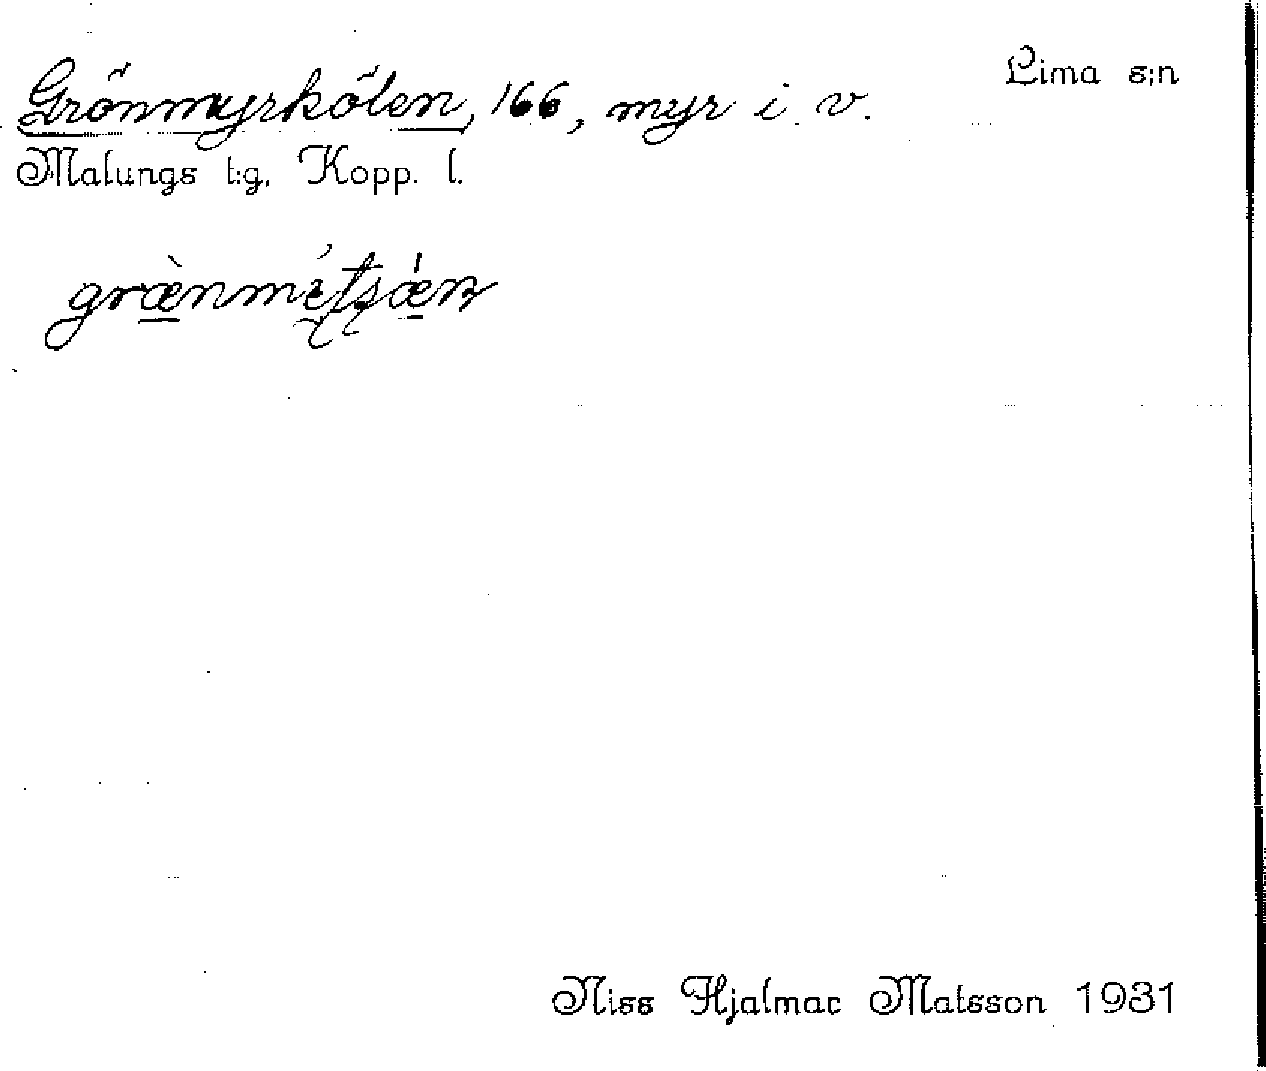 Lima s:n
Grönmyrkölen, 166, myr i v.
Malungs t:g, Kopp. l.
Niss Hjalmar Matsson 1931